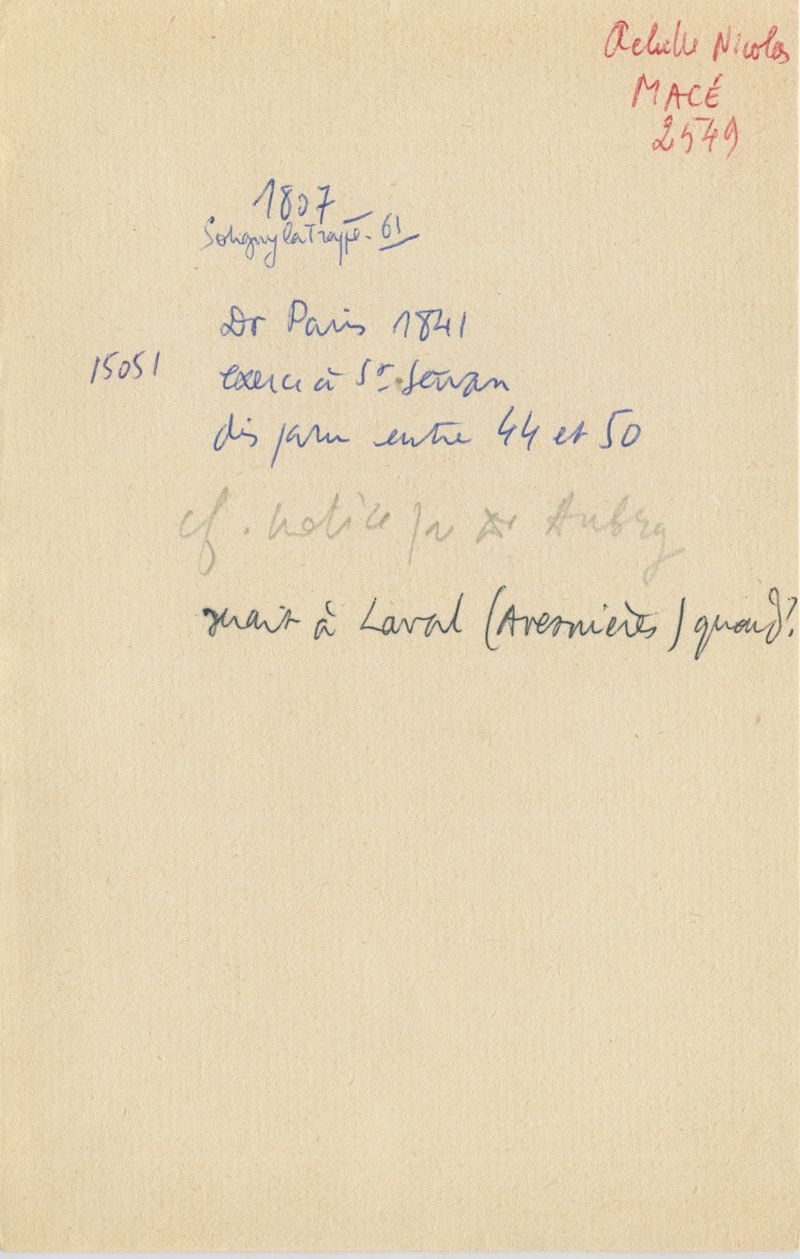 Achille Nicolas
MACÉ
2549
1807
Soligny la Trappe - 61
Dr Paris 1841
15051
exerce à St-Servan
disparu entre 44 et 50
cf. notice par Dr Aubry
à Laval (Avesnières) quand?